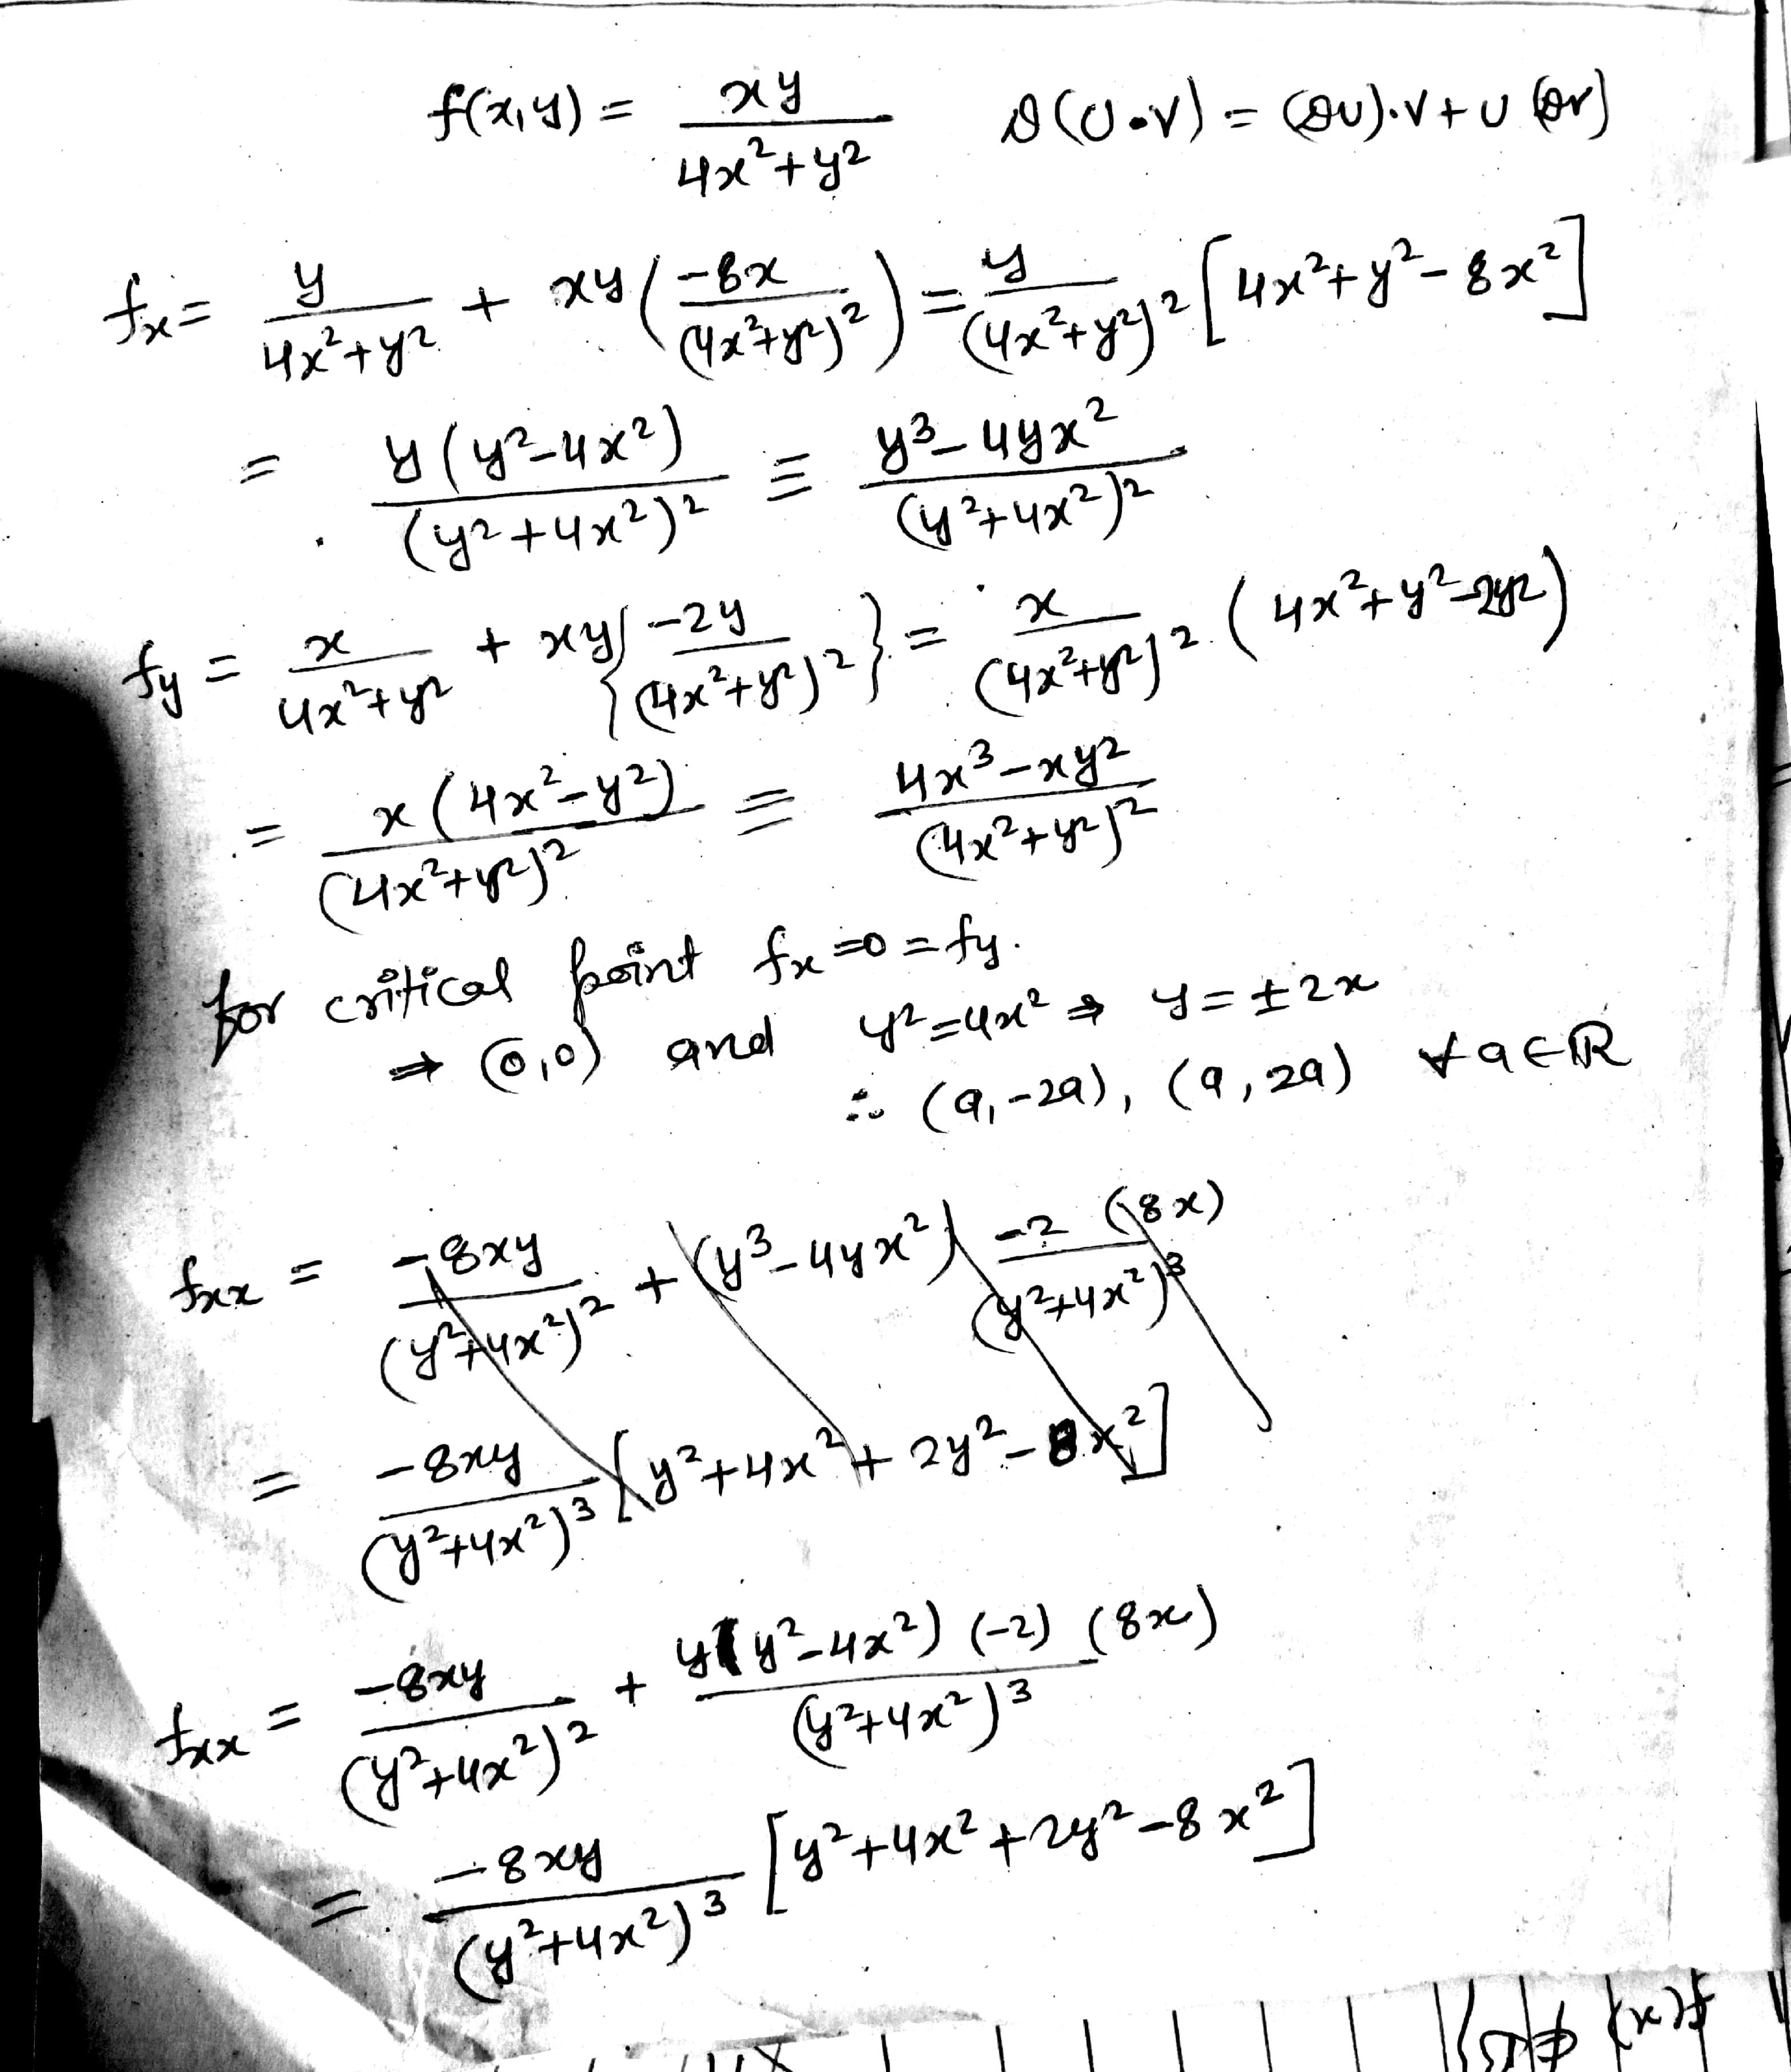 f(x,y) = xy / (4x²+y²)    D(U·V) = (DU)·V + U(DV)
fx = y / (4x²+y²) + xy( -8x / (4x²+y²)² ) = y / (4x²+y²)² [4x²+y²-8x²]
= y(y²-4x²) / (y²+4x²)² = y³-4yx² / (y²+4x²)²
fy = x / (4x²+y²) + xy{ -2y / (4x²+y²)² } = x / (4x²+y²)² · (4x²+y²-2y²)
= x(4x²-y²) / (4x²+y²)² = 4x³-xy² / (4x²+y²)²
for critical point fx=0=fy.
⇒ (0,0) and y²=4x² ⇒ y=±2x
∴ (a,-2a), (a,2a) ∀ a∈ℝ
fxx = -8xy / (y²+4x²)² + (y³-4yx²) -2 (8x) / (y²+4x²)³
= -8xy / (y²+4x²)³ [y²+4x²+2y²-8x²]
fxx = -8xy / (y²+4x²)² + y(y²-4x²) (-2) (8x) / (y²+4x²)³
= -8xy / (y²+4x²)³ [y²+4x²+2y²-8x²]